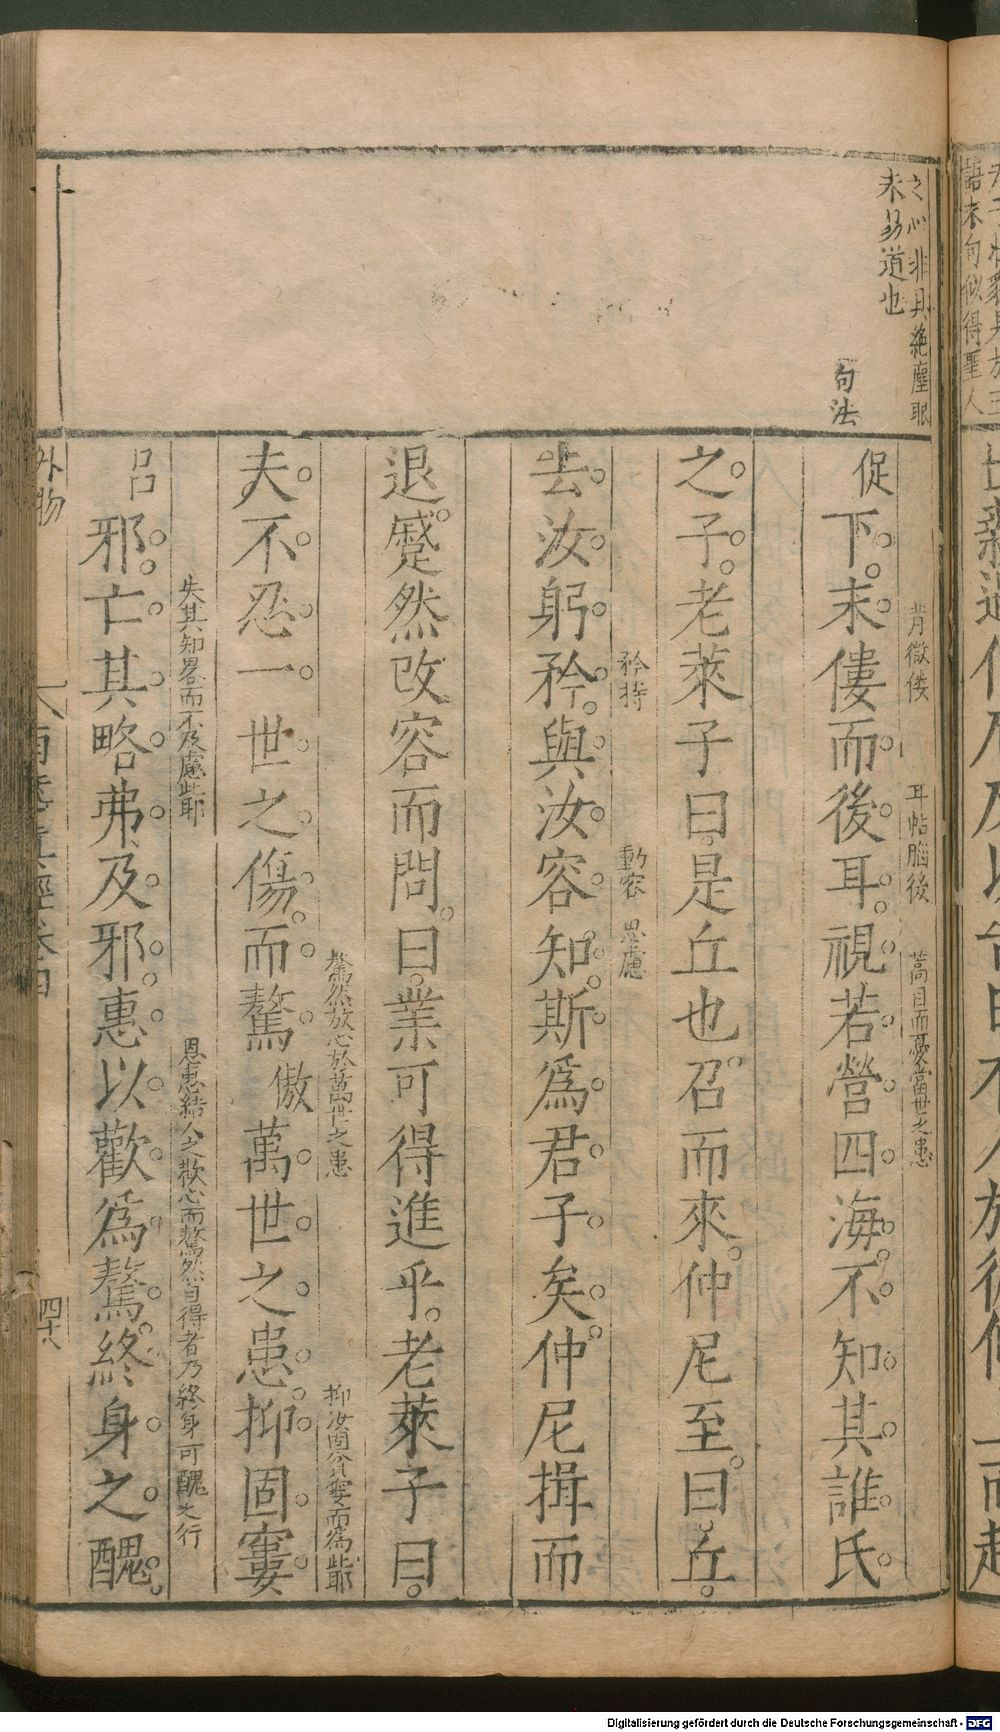 之心非具絶塵眼
未易道也
句法
促下。末僂而後耳。視若營四海。不知其誰氏
背微僂
耳帖腦後
蒿目而憂當世之患
之子。老萊子曰。是丘也召而來。仲尼至。曰。丘。
去汝躬矜。與汝容知。斯爲君子矣。仲尼揖而
矜持
動容
思慮
退。蹙然改容而問。曰。業可得進乎。老萊子曰。
夫不忍一世之傷。而驁傲萬世之患。抑固窶
驁然放心於萬世之患
抑汝固貧窶而爲此耶
呂邪。亡其略弗及邪。惠以歡爲驁。終身之醜。
失其知畧而不及慮此耶
恩惠結人之歡心而驁然自得者乃終身可醜之行
外物
四十八
語末句似得聖人
Digitalisierung gefördert durch die Deutsche Forschungsgemeinschaft - DFG